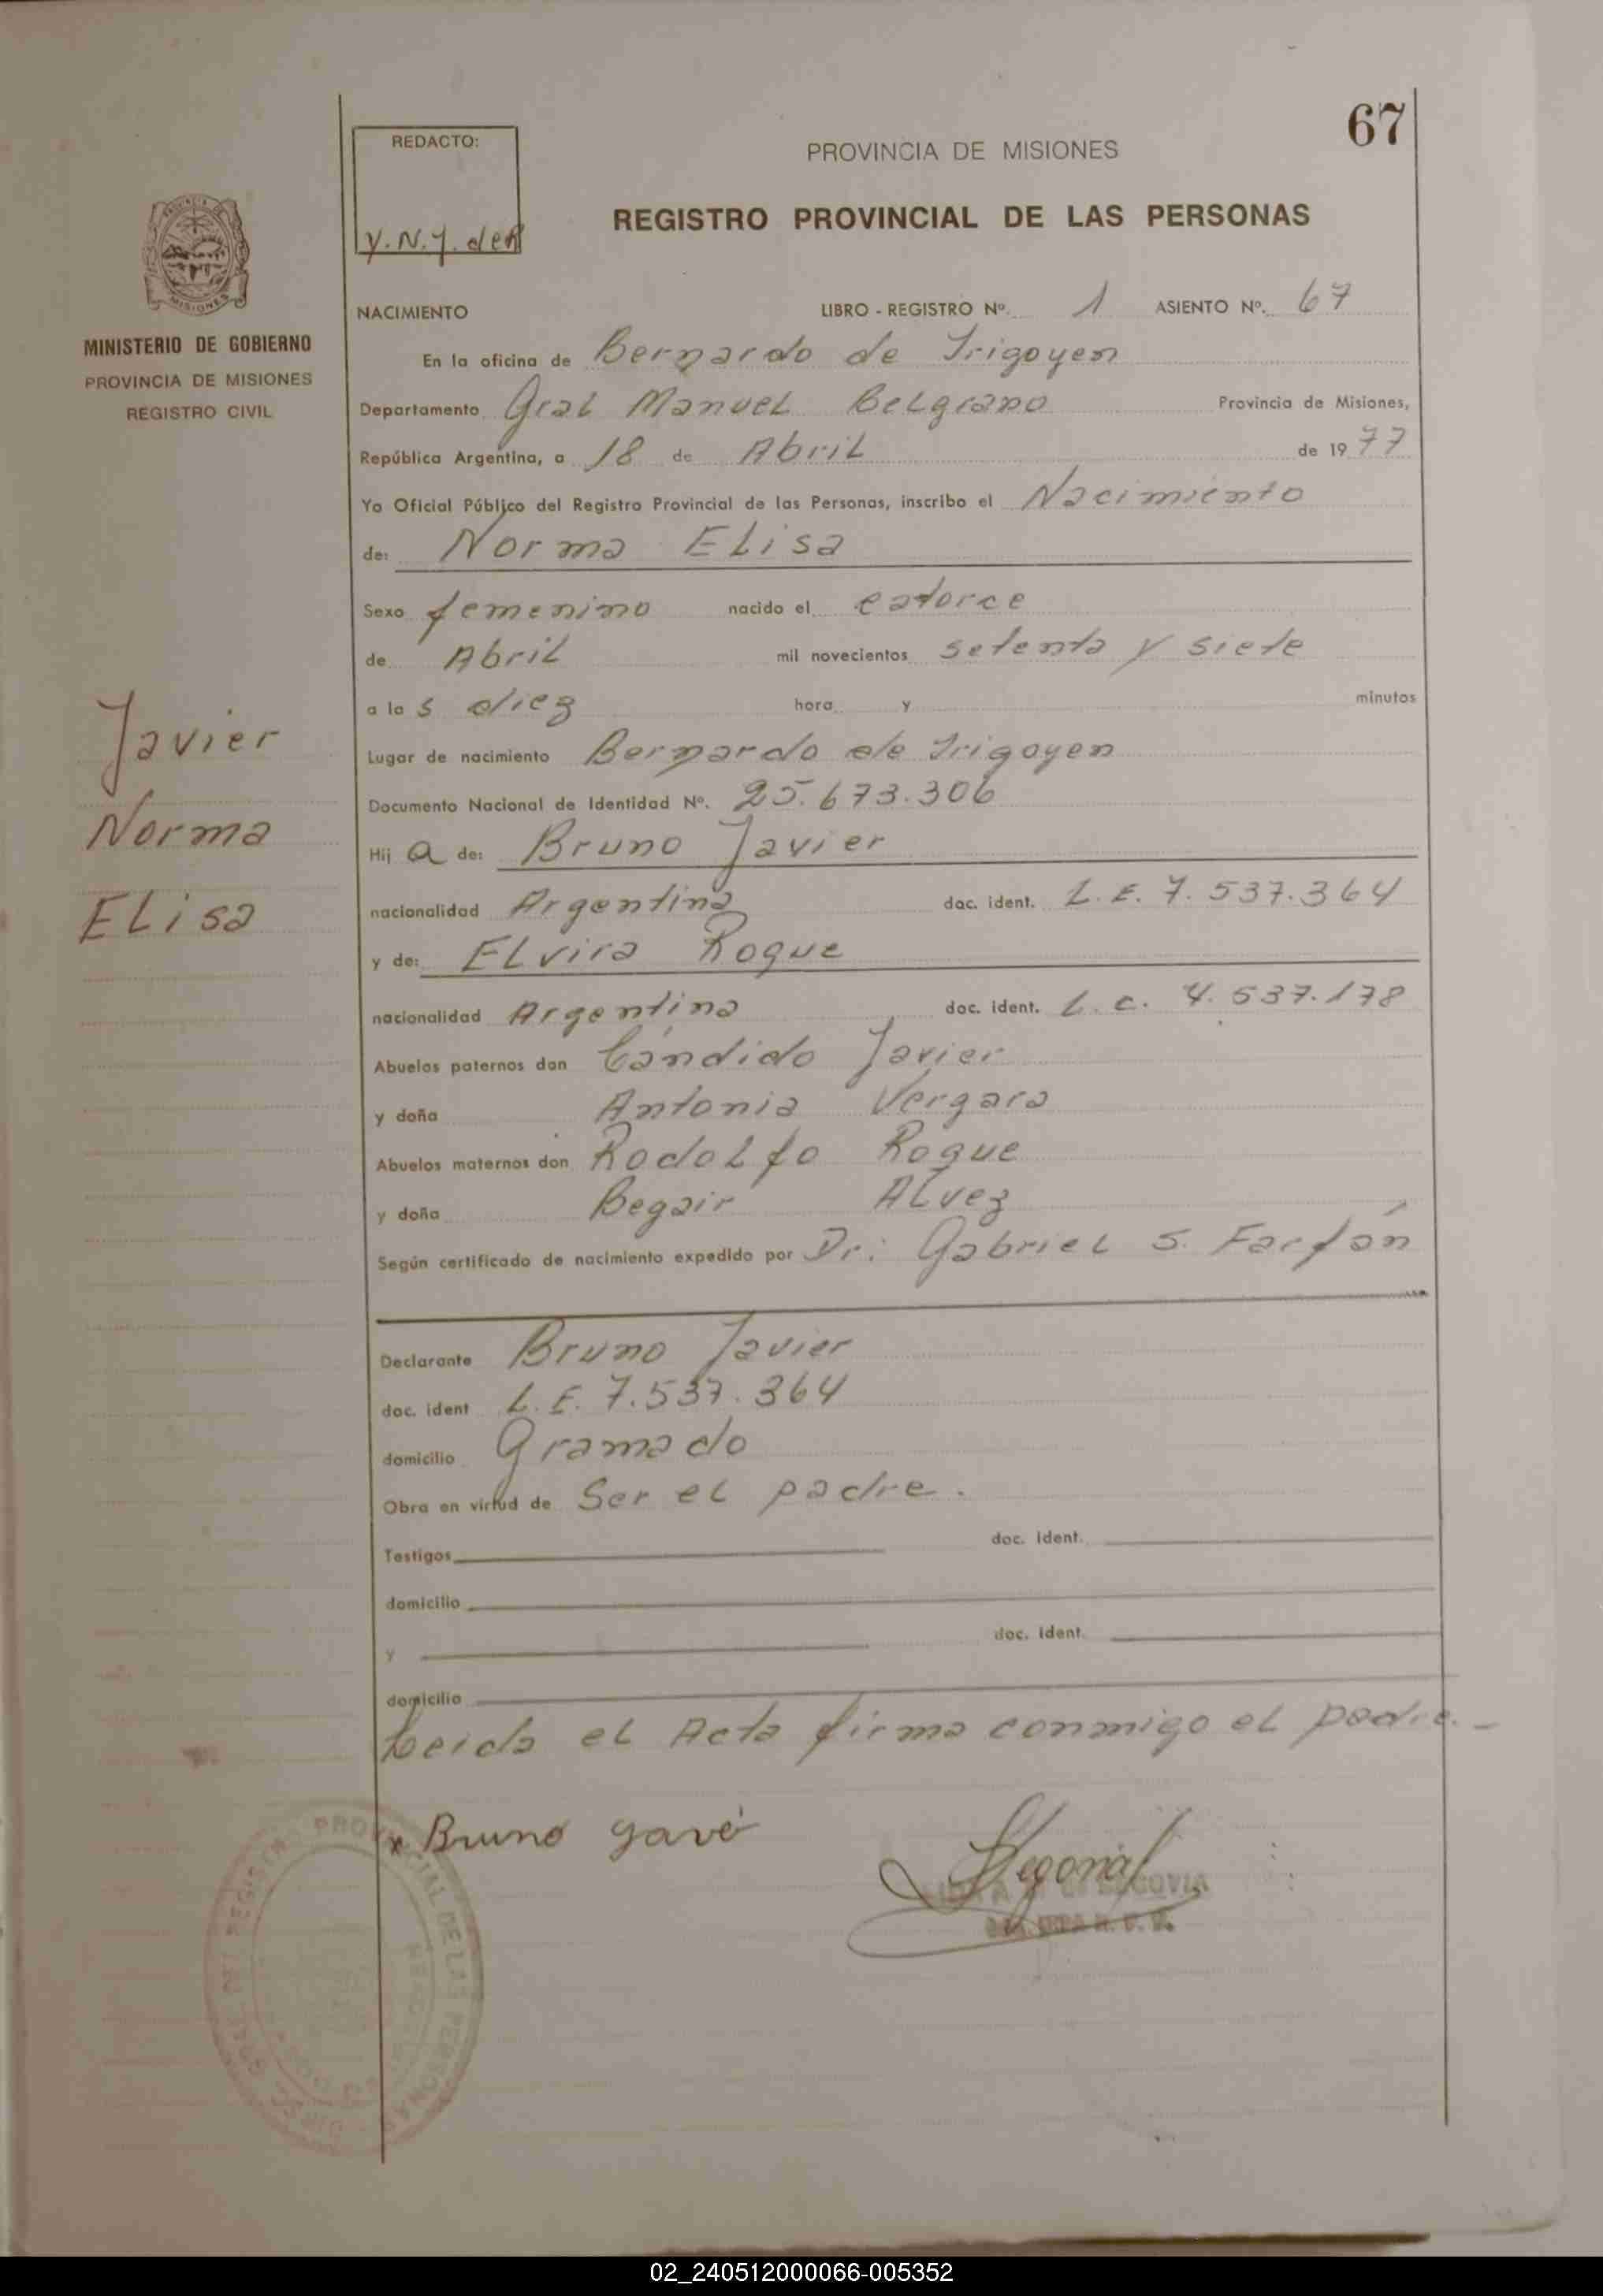 67
REDACTO:
PROVINCIA DE MISIONES
REGISTRO PROVINCIAL DE LAS PERSONAS
Y.N.Y. de R
MISIONES
MINISTERIO DE GOBIERNO
PROVINCIA DE MISIONES
REGISTRO CIVIL
NACIMIENTO LIBRO - REGISTRO Nº. 1 ASIENTO Nº. 67
En la oficina de Bernardo de Irigoyen
Departamento Gral Manuel Belgrano Provincia de Misiones,
República Argentina, a 18 de Abril de 1977
Yo Oficial Público del Registro Provincial de las Personas, inscribo el Nacimiento
de: Norma Elisa
Sexo femenino nacido el catorce
de Abril mil novecientos setenta y siete
a las diez hora y minutos
Lugar de nacimiento Bernardo de Irigoyen
Documento Nacional de Identidad Nº. 25.673.306
Hija de: Bruno Javier
nacionalidad Argentina doc. ident. L.E. 7.537.364
y de: Elvira Roque
nacionalidad Argentina doc. ident. L.C. 4.537.178
Abuelos paternos don Cándido Javier
y doña Antonia Vergara
Abuelos maternos don Rodolfo Roque
y doña Begair Alvez
Según certificado de nacimiento expedido por Dr: Gabriel S. Farfán
Javier
Norma
Elisa
Declarante Bruno Javier
doc. ident L.E. 7.537.364
domicilio Gramado
Obra en virtud de Ser el padre.
Testigos doc. ident.
domicilio
y doc. ident.
domicilio
Leida el Acta firma conmigo el padre.-
x Bruno Javé
SEGOVIA
PROVINCIAL DE LAS PERSONAS
02_240512000066-005352